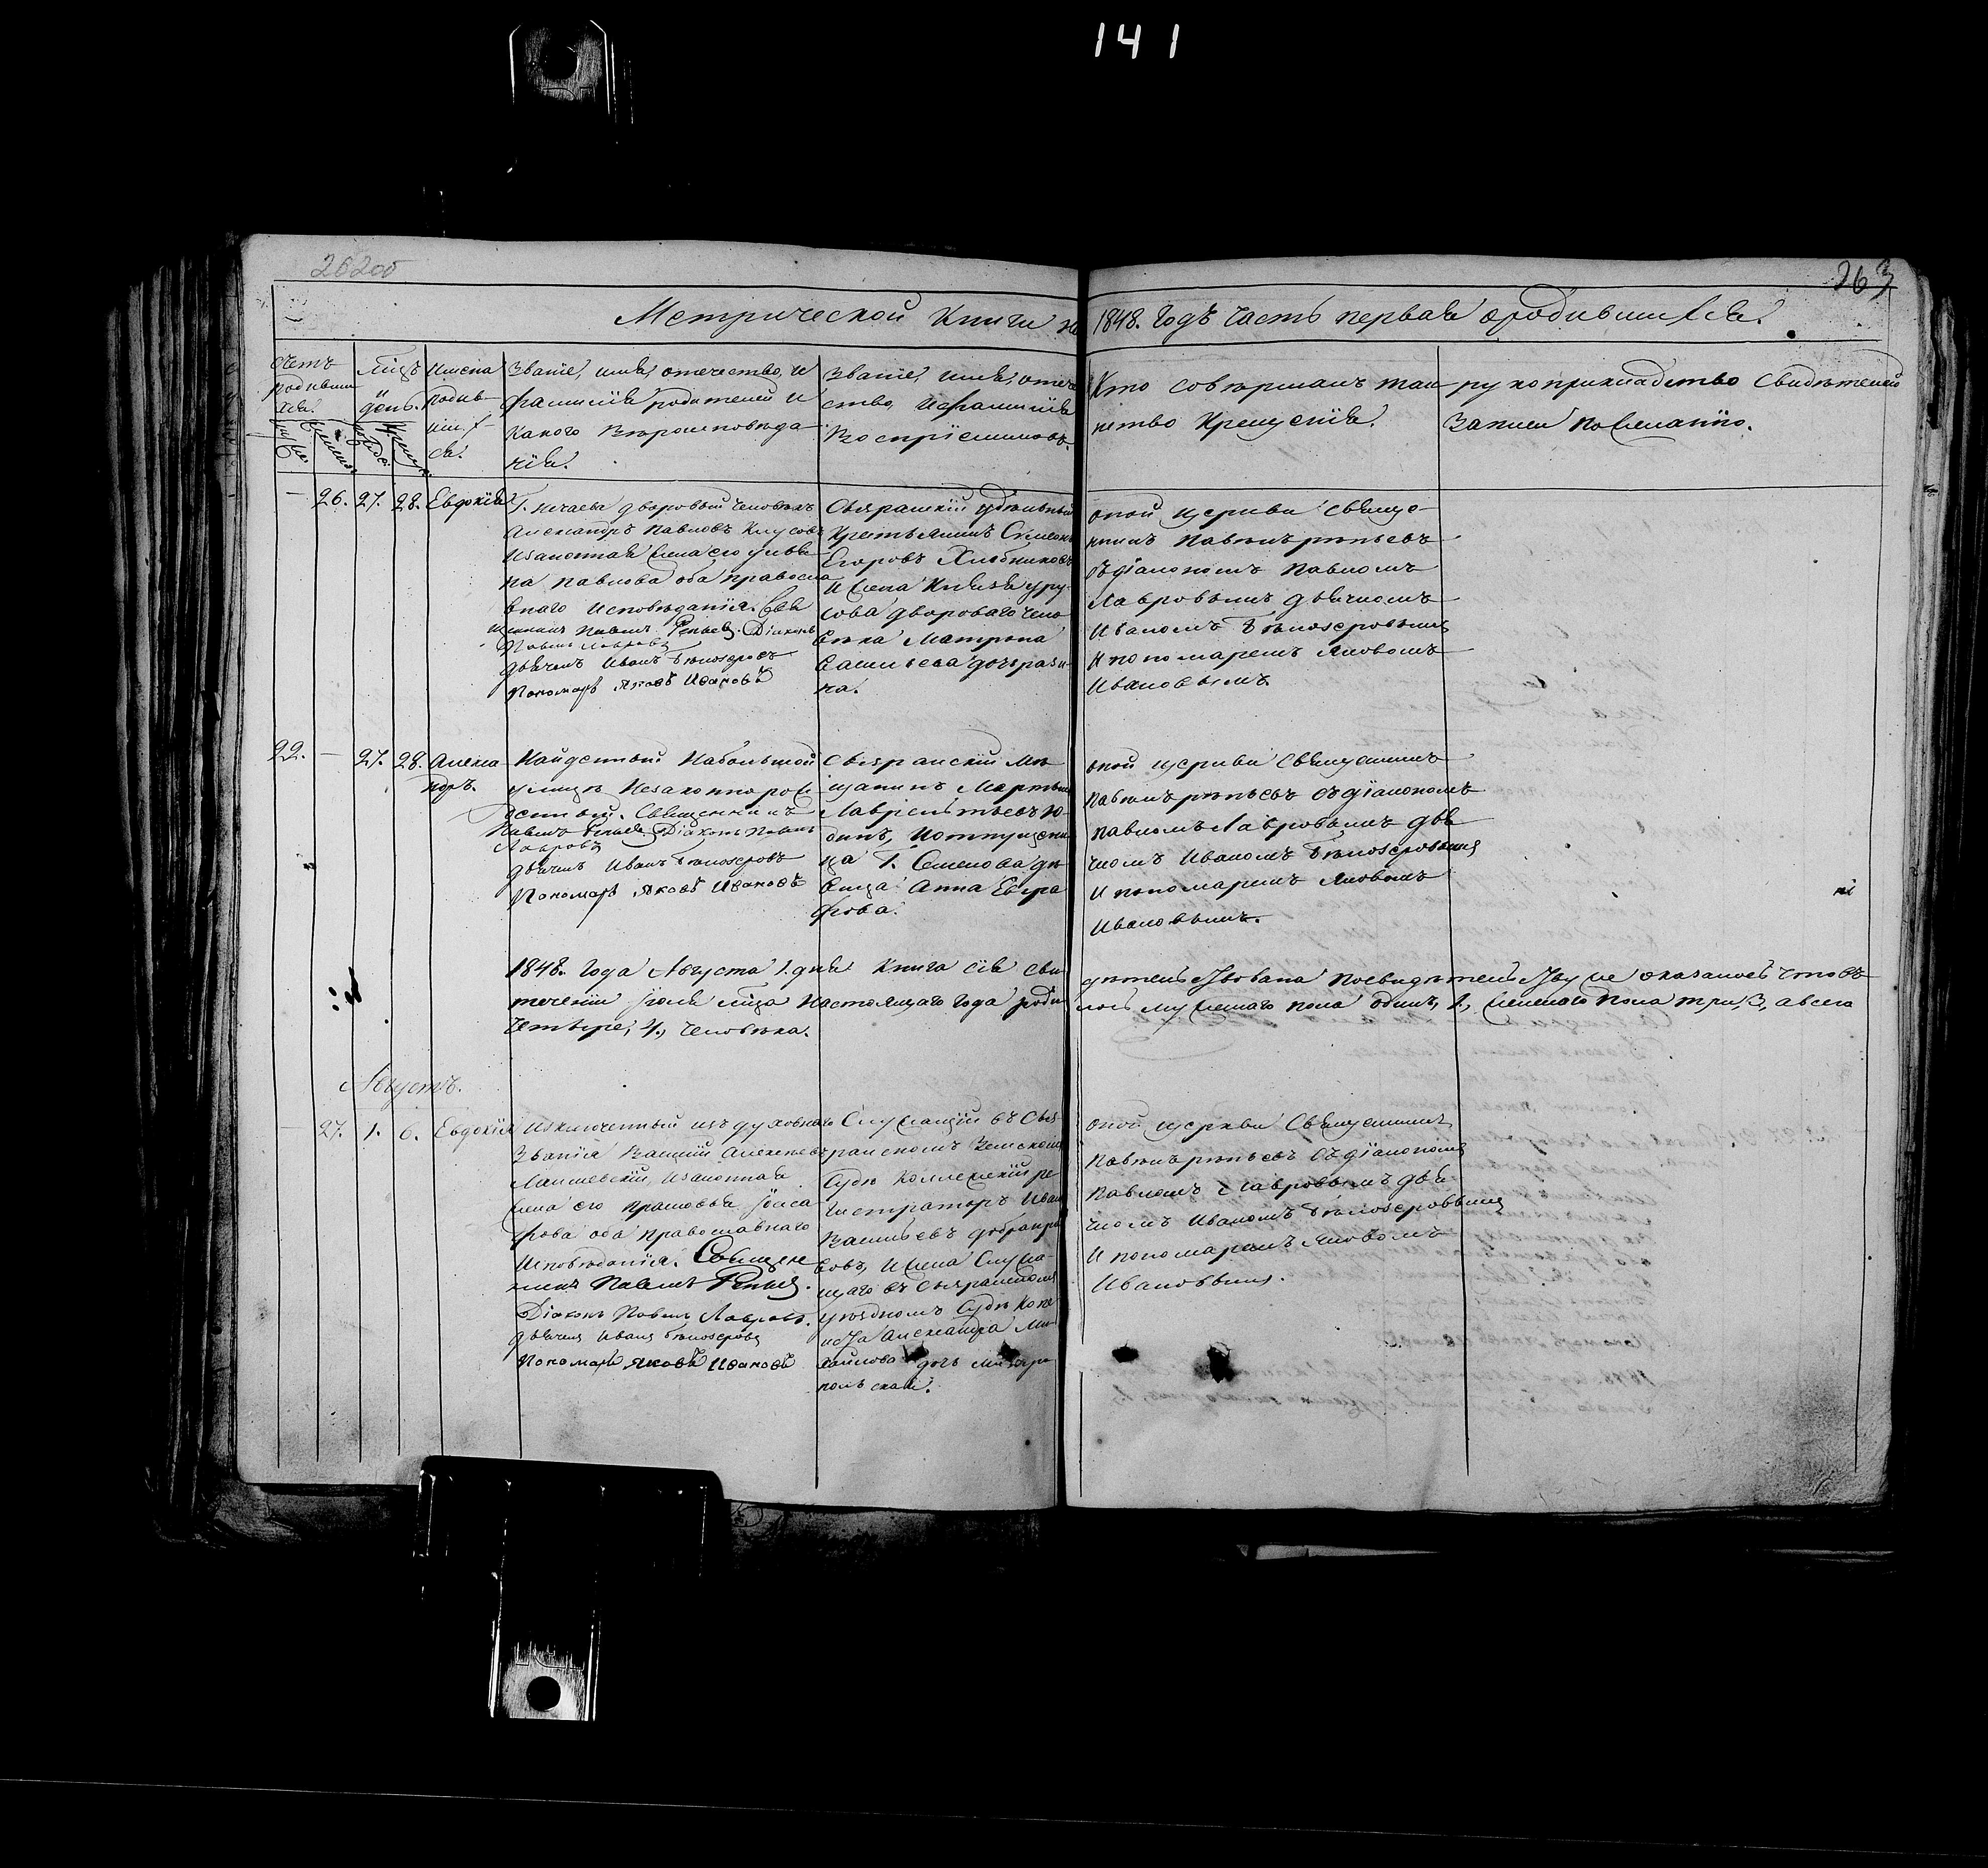 141
262об
263
Метрической Книги на 1848. Годъ часть первая о родившихся.
Счетъ
родивши
хся.
Мцъ
и
день.
Имена
родив-
ших-
ся.
Званіе, имя, отечество, и
фамилія родителей и
какого вѣроисповѣда
нія.
Званіе, имя, отече
ство, и фамилія
Воспріемниковъ.
Кто совѣршалъ таи
нство Крещенія.
рукоприкладство Свидѣтелей
записи по Желанію.
— 26. 27. 28. Евдокія
Г. Нечаева дворовый человѣкъ
Александръ Павловъ
изаконная жена его улья
на павлова оба правосла
внаго исповѣданія. Свя
щенникъ Павелъ Репьевъ. Діаконъ
Павелъ Лавровъ
дьячекъ Иванъ Бѣлозеровъ
Пономарь Яковъ Ивановъ
Сызранскій удѣльный
крестьянинъ Симеонъ
Егоровъ Хлѣбниковъ
и жена Князя уру
сова двороваго чело
вѣка Матрона
Васильева
на.
оной церкви Священ-
никъ Павелъ рѣпьевъ
съ діакономъ Павломъ
Лавровымъ дьячкомъ
Иваномъ Бѣлозеровымъ
и пономаремъ Яковомъ
Ивановымъ.
22. — 27. 28. Алекса
ндръ.
Найденный на большой
улицѣ Незаконнорож
денный. Священникъ
Павелъ Репьевъ Діаконъ Павелъ
Лавровъ
дьячекъ Иванъ Бѣлозеровъ
Пономарь Яковъ Ивановъ
Сызранскій мѣ
щанинъ Мартынъ
Лаврентьевъ Ю-
динъ, и отпущени
ца Г. Семенова дѣ
вица Анна Евгра
фова.
оной церкви Священникъ
Павелъ рѣпьевъ съ діакономъ
Павломъ Лавровымъ дья
чкомъ Иваномъ Бѣлозеровымъ
и пономаремъ Яковомъ
Ивановымъ.
1848. Года Августа 1. дня Книга сія свидѣтельствована По свидѣтельству же оказалось что въ
теченіи Іюля мѣца настоящаго года родилось мужескаго пола одинъ, 1, женскаго пола три, 3, а всего
четыре, 4, человѣка.
Августъ.
— 27. 1. 6. Евдокія
Изключенный изъ духовнаго
званія Василій Алексѣевъ
Лаишевскій, изаконная
жена его прасковья Іоса
фова оба православнаго
исповѣданія. Священ
никъ Павелъ Репьевъ.
Діаконъ Павелъ Лавровъ.
дьячекъ Иванъ Бѣлозеровъ
Пономарь Яковъ Ивановъ
Служащій въ Сыз-
ранскомъ Земскомъ
Судѣ Коллежскій ре
гистраторъ Иванъ
Васильевъ добронра
вовъ, и жена Служа-
щаго въ Сызранскомъ
уѣздномъ Судѣ Копе
иста Александра Ми-
хайлова дочь
польская.
оной церкви Священникъ
Павелъ рѣпьевъ съ діакономъ
Павломъ Лавровымъ дья
чкомъ Иваномъ Бѣлозеровымъ
и пономаремъ Яковомъ
Ивановымъ.